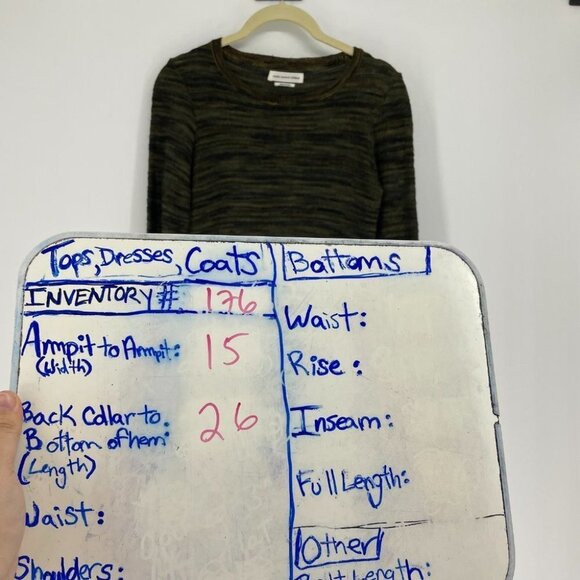 Tops, Dresses, Coats
INVENTORY #: 176
Armpit to Armpit: 15
(Width)
Back Collar to
Bottom of hem: 26
(Length)
Waist:
Shoulders:
Bottoms
Waist:
Rise:
Inseam:
Full Length:
Other
Length: